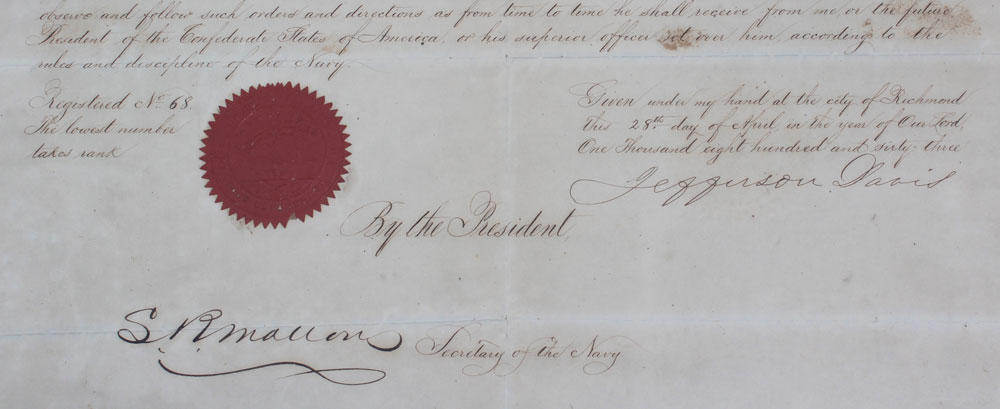 observe and follow such orders and directions as from time to time he shall receive from me, or the future
President of the Confederate States of America, or his superior officer set over him, according to the
rules and discipline of the Navy.
Registered No. 68.
The lowest number
takes rank
Given under my hand at the city of Richmond
this 28th day of April, in the year of Our Lord,
One Thousand eight hundred and sixty-three
Jefferson Davis
By the President,
S R Mallory
Secretary of the Navy